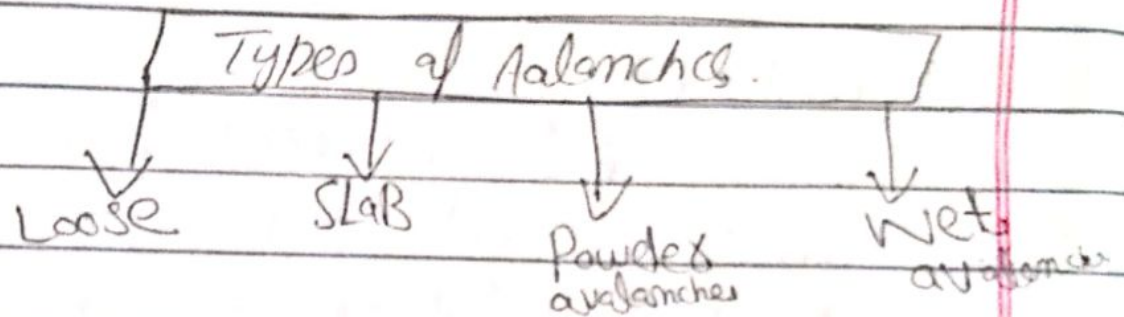 Types of Aalanches.
Loose
SLaB
Powder
avalanches
Wet
avalanche